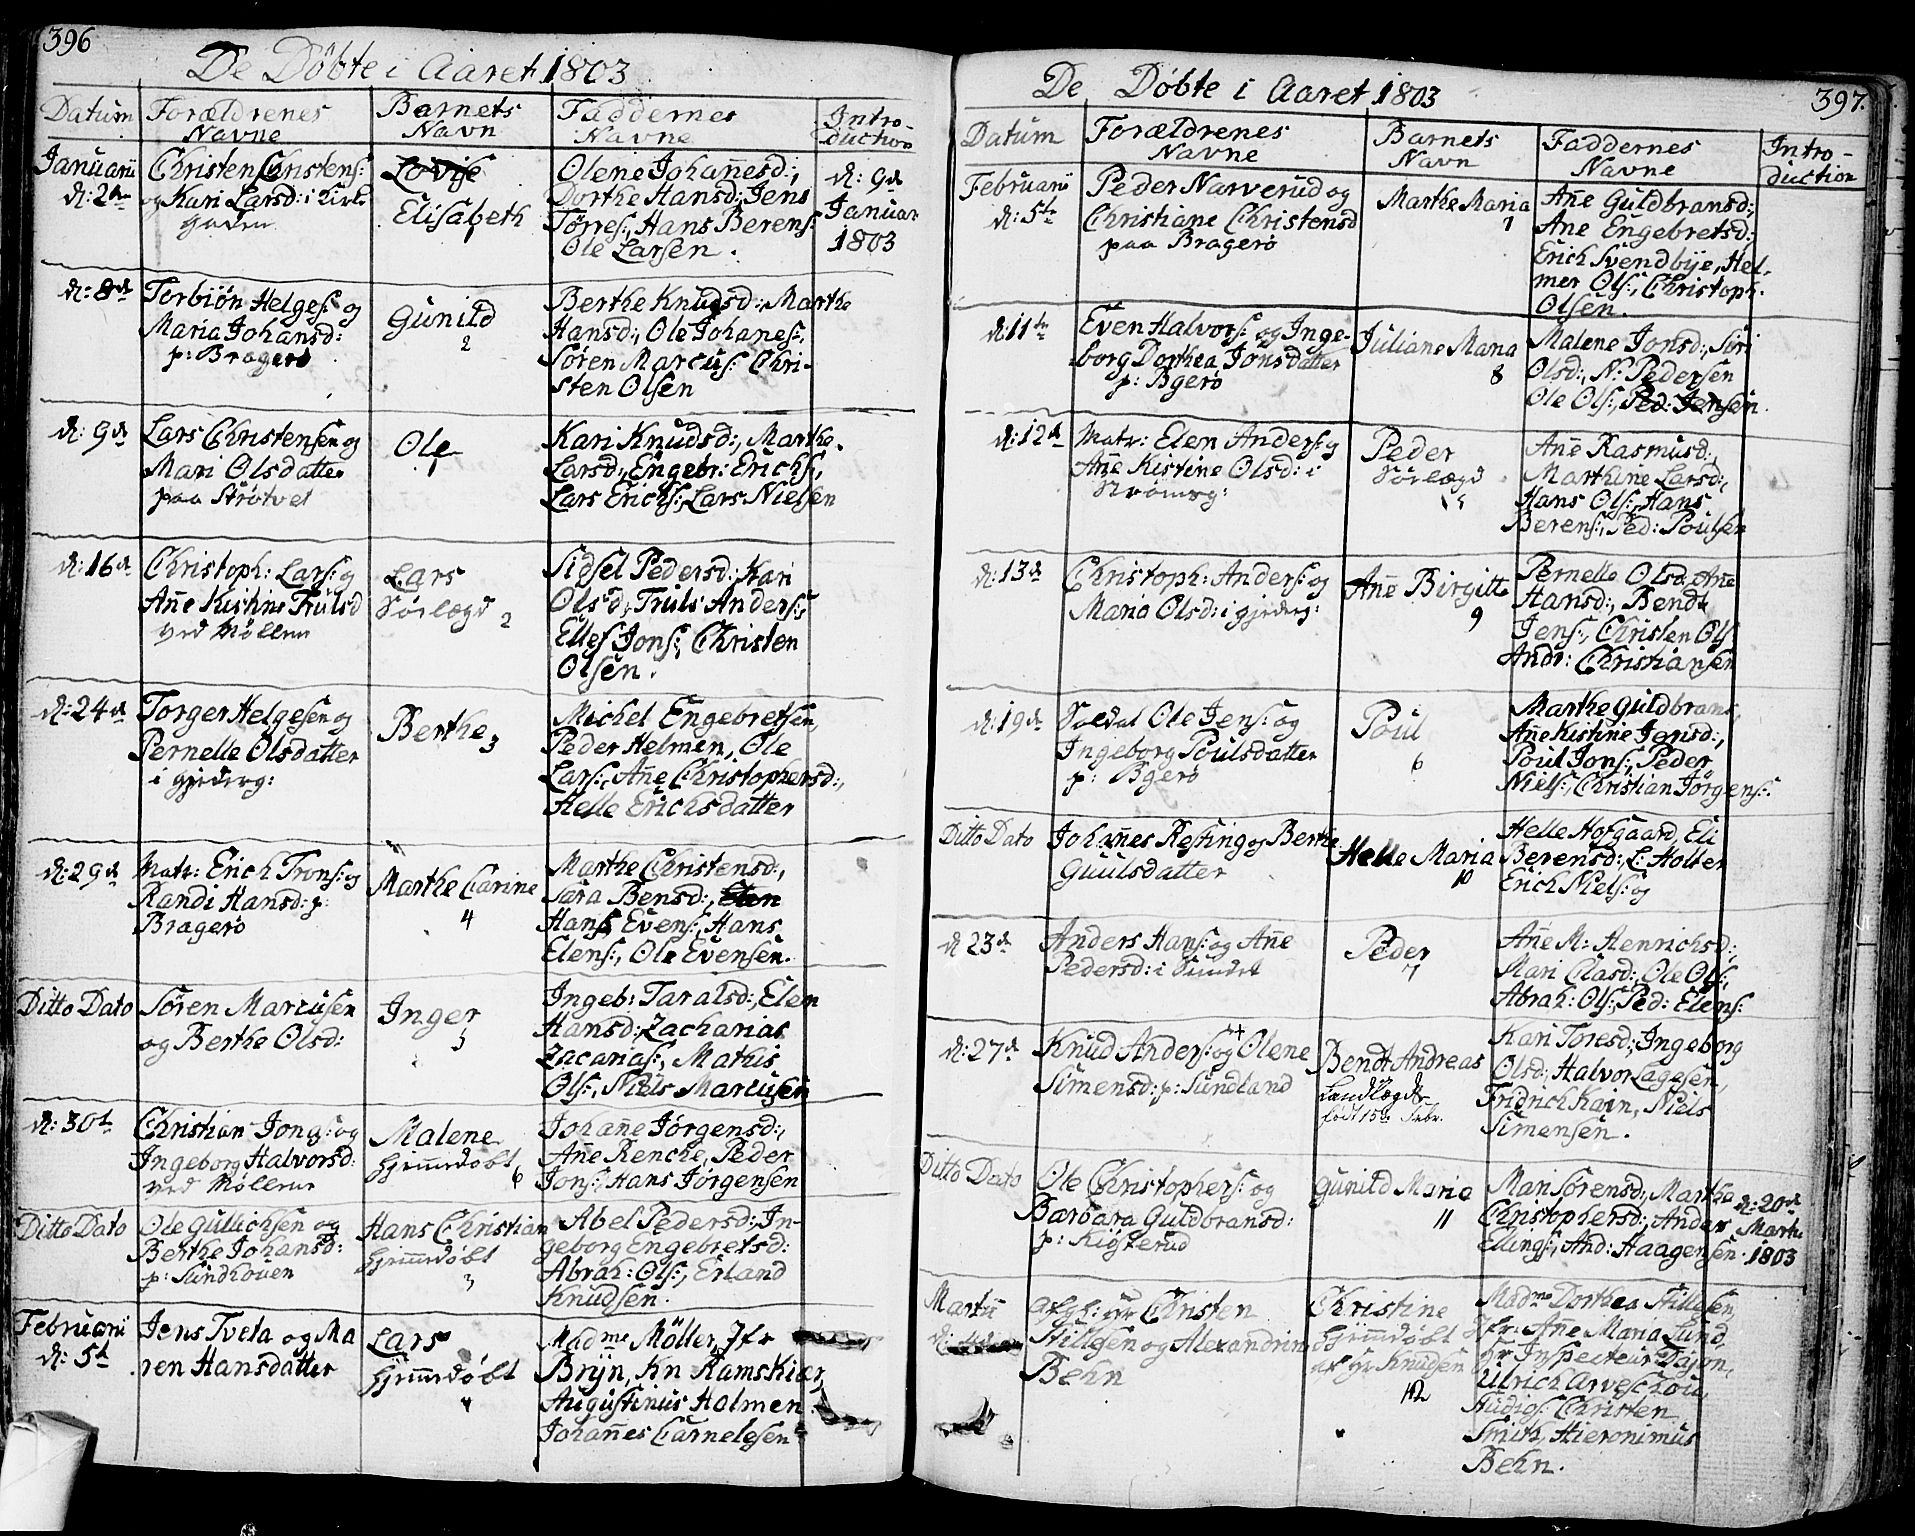 396
De Döbte i Aaret 1803
Datum
Forældrenes
Navne
Barnets
Navn
Faddernes
Navne
Intro-
duction
Januarii
d: 2den
Christen Christens:
og Kari Larsd: i Kirke
gaden
Lovise
Elisabeth
1
Olene Johan̄esd:,
Dorthe Hansd:, Jens
Törres:, Hans Berens:
Ole Larsen.
d: 9de
Januar
1803
d: 8de
Torbiön Helges: og
Maria Johansd:
p: Bragerö
Gunild
2
Berthe Knudsd:, Marthe
Hansd:, Ole Johanes:,
Sören Marcus: Chri-
sten Olsen
d: 9de
Lars Christensen og
Mari Olsdatter
paa Strötvet
Ole
1
Kari Knudsd:, Marthe
Larsd:, Engebr: Erichs:,
Lars Erichs:, Lars Nielsen
d: 16de
Christoph: Lars: og
Ane Kistine Trulsd
ved Möllen
Lars
Sörlægd 2
Sidsel Pedersd:, Kari
Olsd:, Truls Anders:,
Ellef Jons:, Christen
Olsen.
d: 24de
Torger Helgesen og
Pernelle Olsdatter
i gjederg:
Berthe 3
Michel Engebretsen,
Peder Helmen, Ole
Lars:, An̄e Christophersd:,
Helle Erichsdatter
d: 29de
Matr: Erich Trons: og
Randi Hansd: p:
Bragerö
Marthe Carine
4
Marthe Christensd:,
Sara Bensd:,
Hans Evens:, Hans
Elens:, Ole Evensen.
Ditto Dato
Sören Marcusen
og Berthe Olsd:
Inger
5
Ingeb: Taralsd:, Elen
Hansd:, Zacharias
Zacarias:, Mathis
Ols:, Niels Marcusen
d: 30te
Christian Jons: og
Ingeborg Halvorsd:
ved Möllen
Malene
hjemmedöbt
6
Johan̄e Jörgensd:,
An̄e Renche, Peder
Jons:, Hans Jörgensen
Ditto Dato
Ole Gullichsen og
Berthe Johansd:
p: Sundhouen
Hans Christian
hjemmedöbt
3
Abel Pedersd:, In-
geborg Engebretsd:
Abrah: Ols:, Erland
Knudsen.
Februarii
d: 5te
Jens Tveta og Ma
ren Hansdatter
Lars
hjemmedöbt
4
Madme Möller, Jfr
Bryn, Kn Ramskiær,
Augustinus Holmen
Johan̄es Carnelesen
397.
De Döbte i Aaret 1803
Datum
Forældrenes
Navne
Barnets
Navn
Faddernes
Navne
Intro-
duction
Februarii
d: 5te
Peder Narverud og
Christiane Christensd
paa Bragerö
Marthe Maria
7
An̄e Guldbransd:,
Ane Engebretsd:,
Erich Svendbye, Hel-
mer Ols:, Christoph:
Olsen.
d: 11te
Even Halvors: og Inge-
borg Dorthea Jonsdatter
p: Bgerö
Juliane Maria
8
Malene Jonsd:, Siri
Olsd:, N: Pedersen
Ole Ols:, Ped: Jensen.
d: 12te
Matr: Elen Anders: og
An̄e Kistine Olsd: i
Strömsg:
Peder
Sörlægd
5
An̄e Rasmusd:,
Marthine Larsd:,
Hans Ols:, Hans
Berens:, Ped: Poulsen
d: 13de
Christoph: Anders: og
Maria Olsd: i gjederg:
An̄e Birgitte
9
Pernelle Olsd:, An̄e
Hansd:, Bendt
Jens:, Christen Ols
Andr: Christiansen
d: 19de
Soldat Ole Jens: og
Ingeborg Poulsdatter
p: Bgerö
Poul
6
Marthe Guldbrans,
An̄e Kistine Jonsd:,
Poul Jons:, Peder
Niels:, Christian Jörgens:
Ditto Dato
Johan̄es Resting og Berthe
Guulsdatter
Helle Maria
10
Helle Hofgaard, Eli
Berensd:, C: Holter
Erich Niels: og
d 23de
Anders Hans: og An̄e
Pedersd: i Sundet
Peder
7
An̄e M: Henrichsd:,
Mari Clasd:, Ole Ols:,
Abrah: Ols:, Ped: Elens:
d: 27de
Knud Anders: og Olene
Simensd: p: Sundland
Bendt Andreas
Landlægdr
födt 15de Febr.
Kari Toresd:, Ingeborg
Olsd:, Halvor Lagesen,
Fridrich Kain, Niels
Simensen.
Ditto Dato
Ole Christophers: og
Barbara Guldbransd:
p: Kigerud
Gunild Maria
11
Mari Sörensd:, Marthe
Christophersd:, Anders
Ellings:, And: Haagensen.
d: 20de
Marti
1803
Martii
Afg: Hr Christen
Stillesen og Alexandrine
Behn
Christine
hjemmedöbt
af Hr Knudsen
12
Madme Dorthea Stillesen,
Jfr: An̄e Maria Lund,
Hr Inspecteur Dajon,
Ulrich Arveschou,
Studios: Christen
Smith, Hieronimus
Behn.